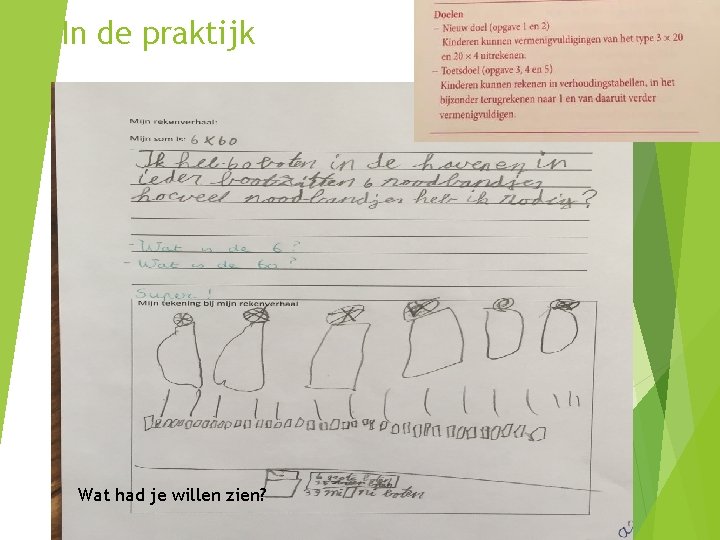 In de praktijk
Doelen
– Nieuw doel (opgave 1 en 2)
Kinderen kunnen vermenigvuldigingen van het type 3 × 20
en 20 × 4 uitrekenen.
– Toetsdoel (opgave 3, 4 en 5)
Kinderen kunnen rekenen in verhoudingstabellen, in het
bijzonder terugrekenen naar 1 en van daaruit verder
vermenigvuldigen.
Mijn rekenverhaal:
Mijn som is: 6 x 60
Ik heb 60 boten in de haven en in
ieder boot zitten 6 noodbandjes
hoeveel noodbandjes heb ik nodig?
- Wat is de 6?
- Wat is de 60?
Super!
Mijn tekening bij mijn rekenverhaal
6 grote boten
mini boten
Wat had je willen zien?